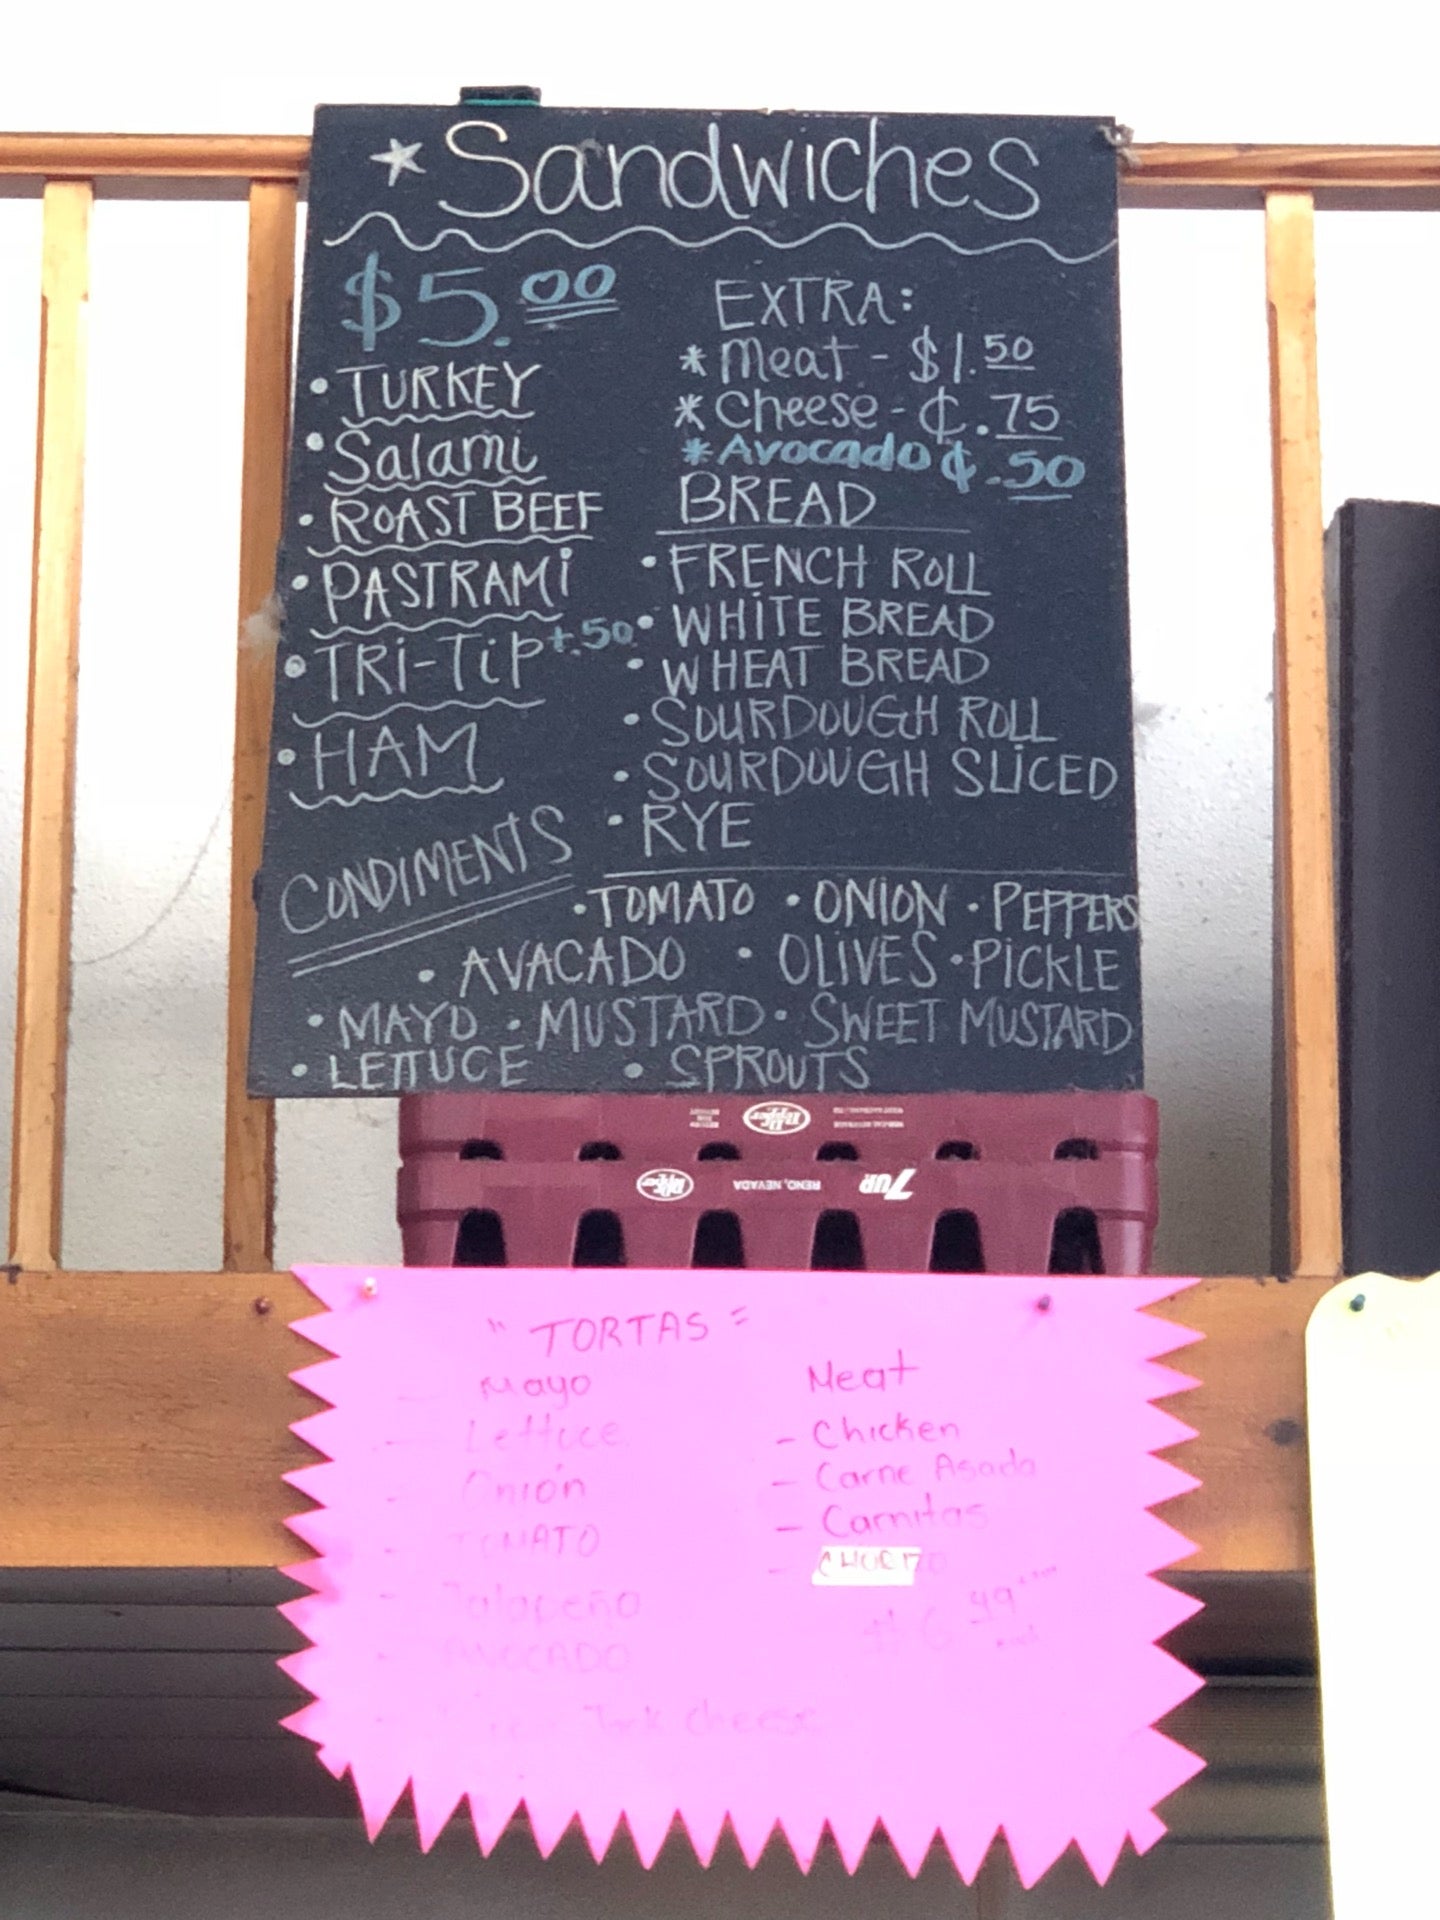 * Sandwiches
$5.00
• TURKEY
• Salami
• ROAST BEEF
• PASTRAMI
• TRI-TIP +.50
• HAM
EXTRA:
* Meat - $1.50
* Cheese - ¢.75
* Avocado ¢.50
BREAD
• FRENCH ROLL
• WHITE BREAD
• WHEAT BREAD
• SOURDOUGH ROLL
• SOURDOUGH SLICED
• RYE
CONDIMENTS
• TOMATO • ONION • PEPPERS
• AVACADO • OLIVES • PICKLE
• MAYO • MUSTARD • SWEET MUSTARD
• LETTUCE • SPROUTS
Dr Pepper
Dr Pepper RENO, NEVADA 7UP
" TORTAS "
Mayo
- Lettuce
- Onion
- TOMATO
- Jalapeño
- AVOCADO
- Jack cheese
Meat
- Chicken
- Carne Asada
- Carnitas
$6.49
each